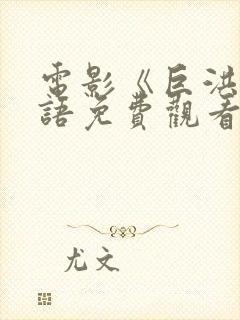 電影《巨洪
語免費觀看
尤文